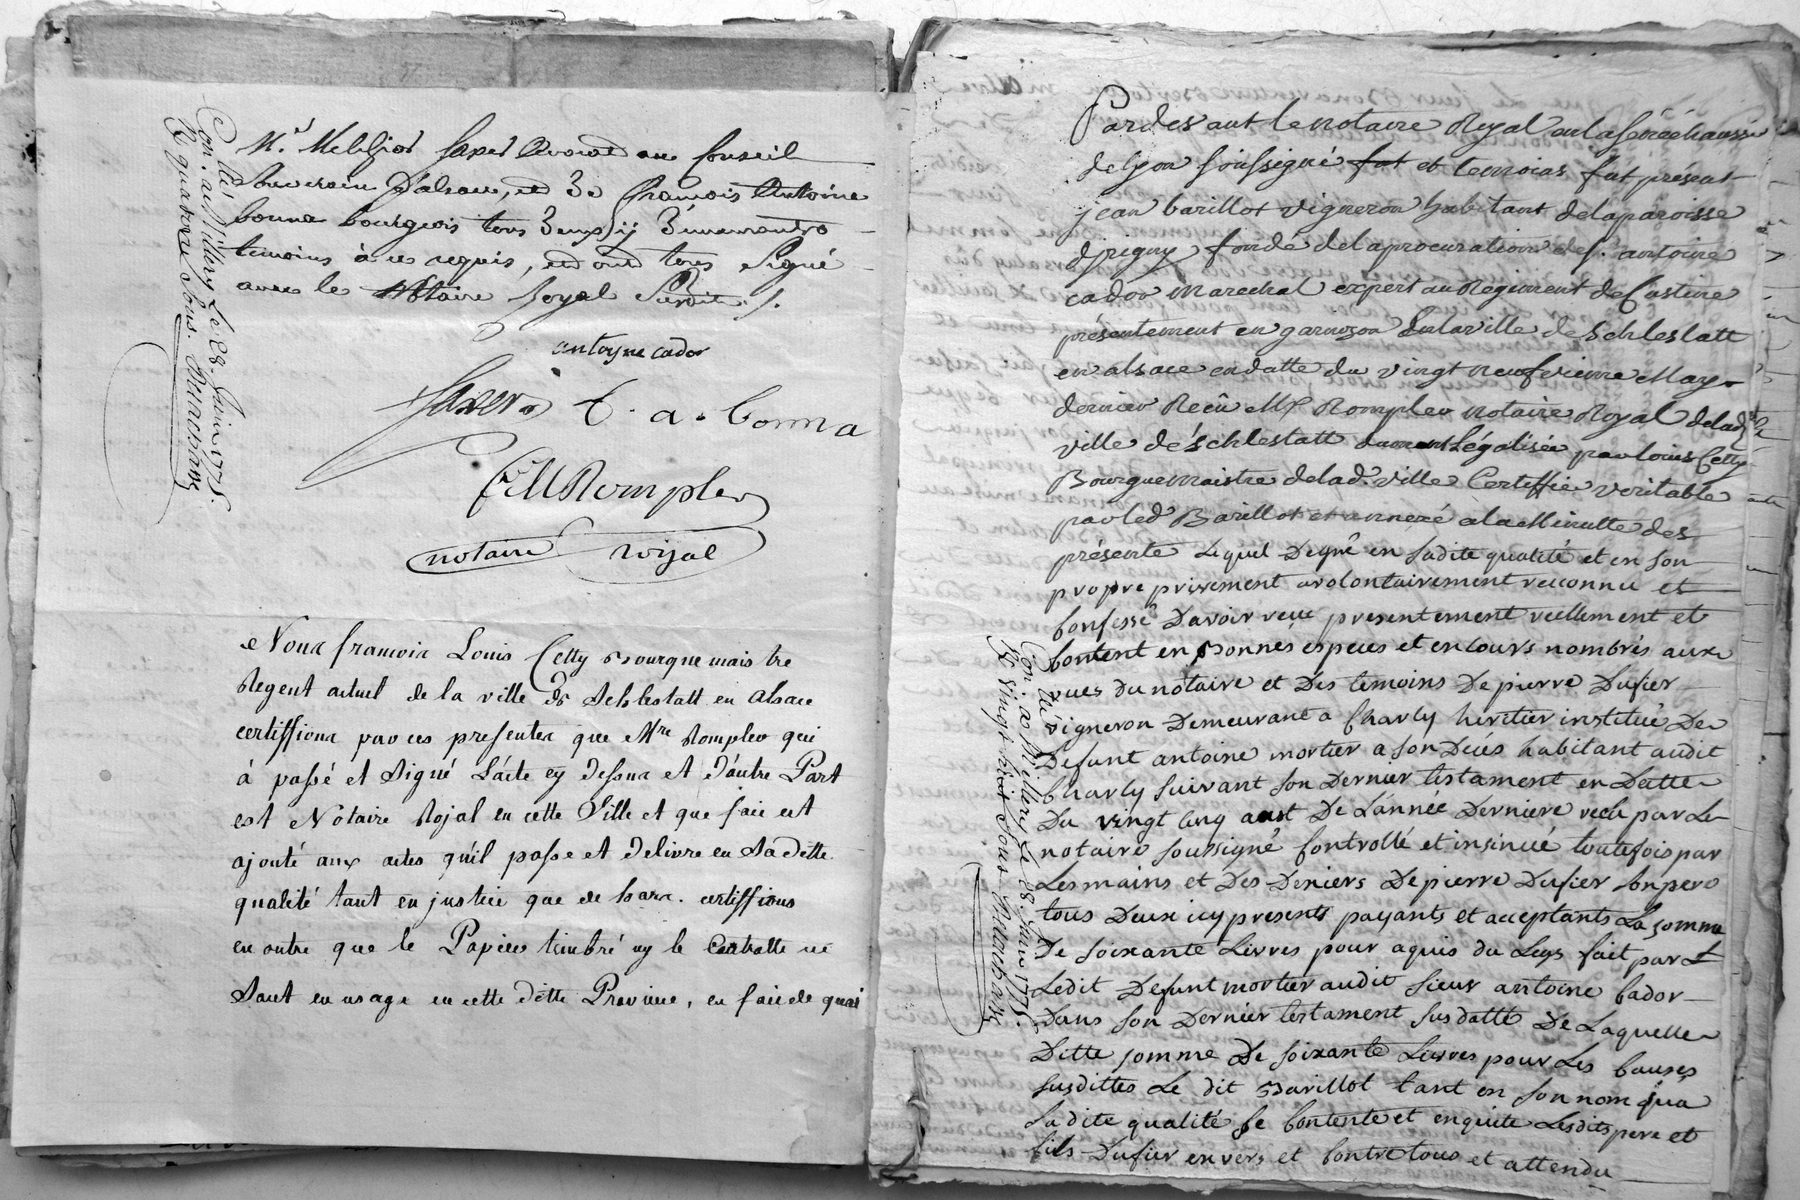 Con. à Millery Le 28. Juin 1775.
R quatorze Sous.
Mr. Melchior Saxer Avocat au Conseil
Souverain d'alsace, et de François Antoine
bonna bourgeois tous demeurants
temoins à ce requis, et ont tous Signé
avec le Notaire Royal Susdit ./.
antoyne cador
Saxer f. a. bonna
Rompler
notaire roijal
Nous francois Louis Cetty Bourgue maistre
Regent actuel de la ville de Schlestatt en alsace
certiffions par ces presentes que Mre Rompler qui
à passé et Signé L'acte cy dessus et d'autre Part
est Notaire Rojal en cette Ville et que foi est
ajouté aux actes qu'il passe et delivre en Sa ditte
qualité tant en justice que de hors. certiffions
en outre que le Papier timbré ny le Controlle ne
Sont en usage en cette ditte Province, en foi de quoi
Pardevant le notaire Royal en la sénéchaussée
de Lyon soussigné fut et temoins fut présent
jean barillot vigneron habitant de la paroisse
d'jrigny fondé de la procuration de s. antoine
cador marechal expert au Régiment de Custine
présentement en garnison en la ville de Schlestatt
en alsace en datte du vingt neufvieme May
dernier Reçû Me Rompler notaire Royal de lad.
ville de schlestatt dument Légalisée par louis Cetty
Bourguemaistre de lad. ville Certiffié veritable
par led Barillot et annexé a la Minutte des
présente Lequel De gré en sadite qualité et en son
propre privement a volontairement reconnu et
Confessé D'avoir reçu presentement reellement et
Content en Bonnes especes et en cours nombrés aux
vues du notaire et Des temoins De pierre Dufier
vigneron Demeurant a Charly héritier institué De
Defunt antoine mortier a son Decés habitant audit
Charly suivant son Dernier testament en Datte
Du vingt cinq aout De L'année Derniere reçu par Le
notaire soussigné Controllé et insinué toutefois par
Les mains et Des Deniers De pierre Dufier son pere
tous Deux icy presents payants et acceptants La somme
De soixante Livres pour aquis du Legs fait par
Ledit Defunt mortier audit sieur antoine Cador
Dans son Dernier testament susdatté De Laquelle
Ditte somme De soixante Livres pour Les causes
susdittes Le dit Barillot tant en son nom qu'a
sadite qualité se Contente et en quitte Lesdits pere et
fils Dufier envers et Contre tous et attendu
Con. a Millery Le 28. Juin 1775.
R Vingt huit Sous